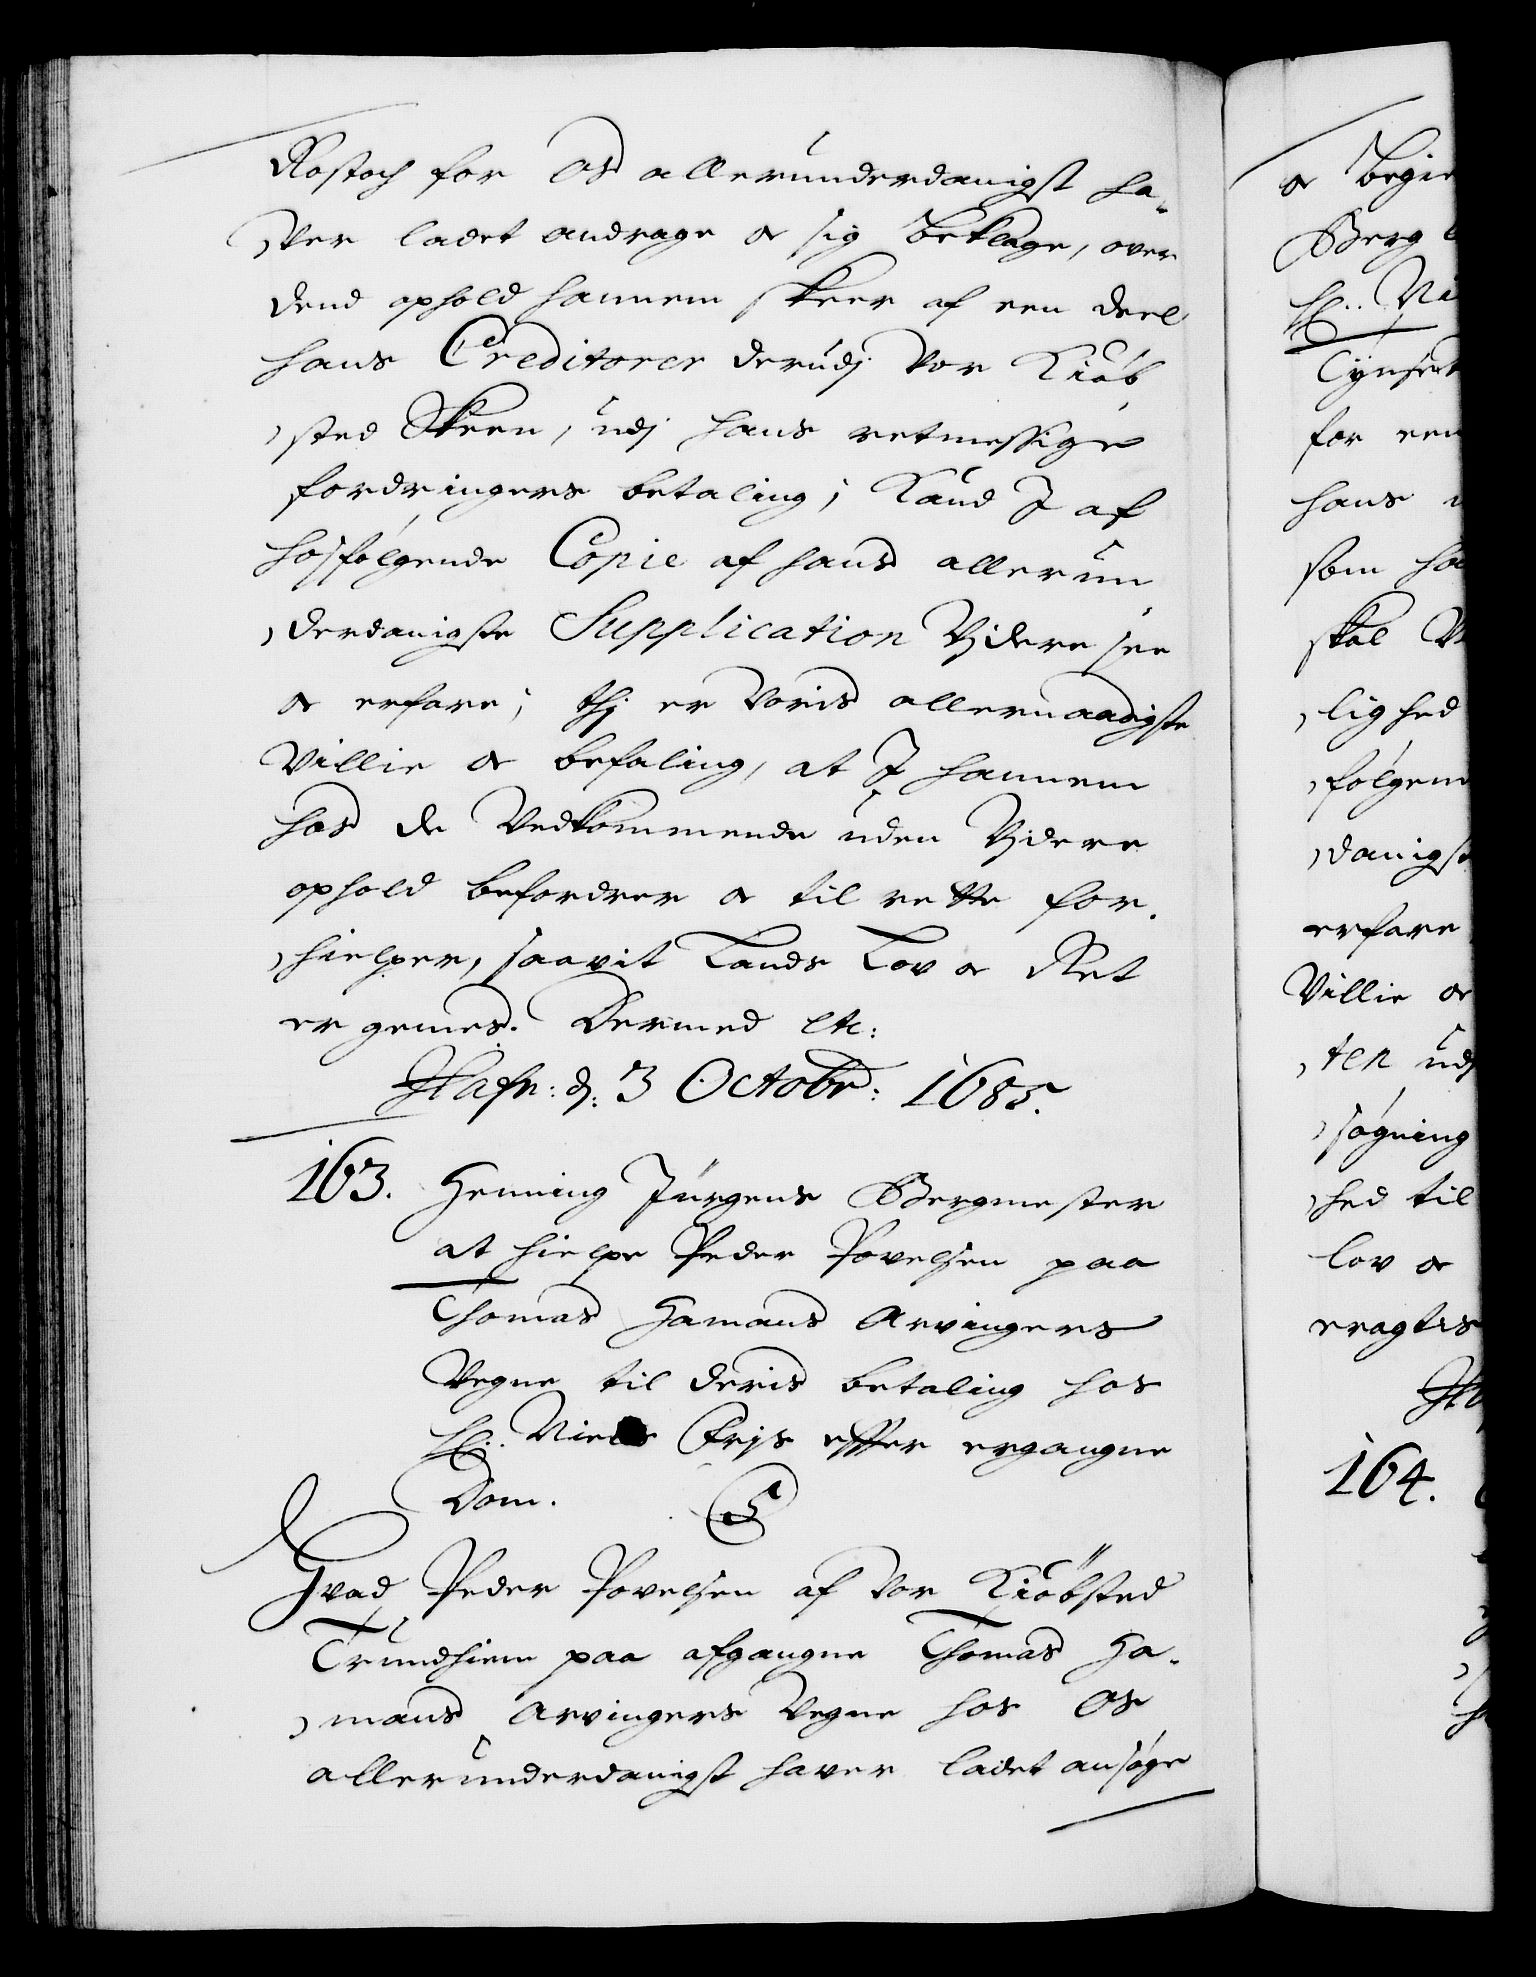 Rostoch for Os allerunderdanigst ha-
,,ver ladet andrage oc sig beklage, over
dend ophold hannem skeer af een deel
hans Creditorer derudj Vor Kiøb
,,sted Skeen, udj hans retmessige
fordringers betaling; Kand I af
hosfølgende Copie af hands allerun
,,derdanigste Supplication Vjdere see
oc erfare; thj er Voris allernaadigste
Villie oc befaling, at I hannem
hos de Vedkommende uden Vjdere
ophold befordrer oc til rette for-
,,hielper, saavit Lands Lov oc Ret
er gemes. Dermed etc:
Hafn: d: 3 Octobr: 1685.
163. Henning Jürgens Bergmester
at hielpe Peder Povelsen paa
Thomas Hamands Arvingers
Vegne til deris betaling hos
Hr. Niels Friis effter ergangne
Dom. S
Hvad Peder Povelsen af Vor Kiøbsted
Trundhiem paa afgangne Thomas Ha-
,,mands Arvingers Vegne hos Os
allerunderdanigst haver ladet ansøge
oc begie
Berg
Hr. Ni
Tÿnset
for een
hans
som ha
skal
,,lighed
,,følgen
,,danigst
erfare
Villie oc
,,ten udj
,,søgning
,,hed til
lov oc
eragtis
Ha
164.